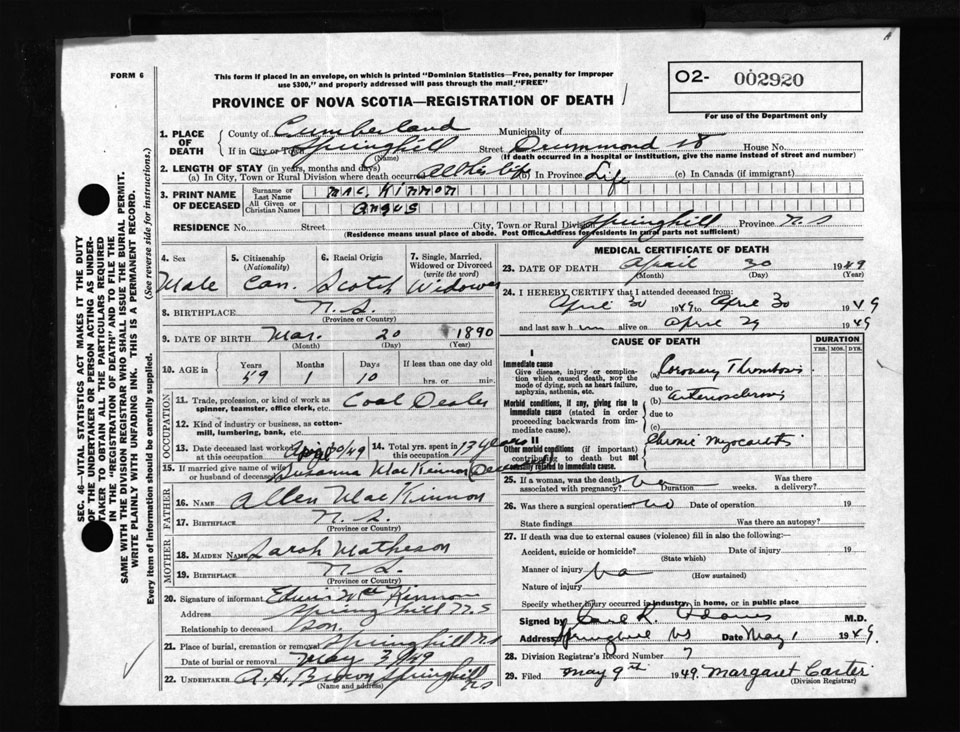 FORM 6
This form if placed in an envelope, on which is printed "Dominion Statistics—Free, penalty for improper
use $300," and properly addressed will pass through the mail, "FREE"
PROVINCE OF NOVA SCOTIA—REGISTRATION OF DEATH
O2- 002920
For use of the Department only
1. PLACE OF DEATH
County of Cumberland Municipality of
If in City or Town Springhill Street Drummond st House No.
(Name) (If death occurred in a hospital or institution, give the name instead of street and number)
2. LENGTH OF STAY (in years, months and days)
(a) In City, Town or Rural Division where death occurred All his life (b) In Province Life (c) In Canada (if immigrant)
3. PRINT NAME OF DECEASED
Surname or Last Name Mac Kinnon
All Given or Christian Names Angus
RESIDENCE No. Street City, Town or Rural Division Springhill Province N.S
(Residence means usual place of abode. Post Office Address for residents in rural parts not sufficient)
4. Sex Male
5. Citizenship (Nationality) Can.
6. Racial Origin Scotch
7. Single, Married, Widowed or Divorced (write the word) Widower
8. BIRTHPLACE N.S.
(Province or Country)
9. DATE OF BIRTH Mar. 20 1890
(Month) (Day) (Year)
10. AGE in Years Months Days If less than one day old
59 1 10 hrs. or min.
OCCUPATION
11. Trade, profession, or kind of work as
spinner, teamster, office clerk, etc. Coal Dealer
12. Kind of industry or business, as cotton-
mill, lumbering, bank, etc.
13. Date deceased last worked at this occupation April 30/49
14. Total yrs. spent in this occupation 13 years
15. If married give name of wife or husband of deceased Susanna MacKinnon (Deceased)
FATHER
16. NAME Allen MacKinnon
17. BIRTHPLACE N.S.
(Province or Country)
MOTHER
18. MAIDEN NAME Sarah Matheson
19. BIRTHPLACE N.S.
(Province or Country)
20. Signature of informant MacKinnon
Address Spring hill N.S
Relationship to deceased Son.
21. Place of burial, cremation or removal Springhill N.S
Date of burial or removal May 3 1949
22. UNDERTAKER A.H. Brown Springhill NS
(Name and address)
MEDICAL CERTIFICATE OF DEATH
23. DATE OF DEATH April 30 1949
(Month) (Day) (Year)
24. I HEREBY CERTIFY that I attended deceased from:
April 30 1949 to April 30 1949
and last saw him alive on April 29 1949
CAUSE OF DEATH
DURATION
YRS. MOS. DYS.
I
Immediate cause
Give disease, injury or complica-
tion which caused death, not the
mode of dying, such as heart failure,
asphyxia, asthenia, etc.
(a) Coronary Thrombosis
due to
Morbid conditions, if any, giving rise to
immediate cause (stated in order
proceeding backwards from im-
mediate cause).
(b) Arteriosclerosis
due to
(c)
II
Other morbid conditions (if important)
contributing to death but not
causally related to immediate cause.
Chronic Myocarditis
25. If a woman, was the death associated with pregnancy? no Duration weeks. Was there a delivery?
26. Was there a surgical operation no Date of operation 19
State findings Was there an autopsy?
27. If death was due to external causes (violence) fill in also the following:
Accident, suicide or homicide? Date of injury 19
(State which)
Manner of injury no
(How sustained)
Nature of injury
Specify whether injury occurred in industry, in home, or in public place
Signed by Carl K. Adams M.D.
Address Springhill NS Date May 1 1949.
28. Division Registrar's Record Number 7
29. Filed May 9th 1949. Margaret Carter
(Division Registrar)
SEC. 46—VITAL STATISTICS ACT MAKES IT THE DUTY
OF THE UNDERTAKER OR PERSON ACTING AS UNDER-
TAKER TO OBTAIN ALL THE PARTICULARS REQUIRED
IN THE "REGISTRATION OF DEATH" AND TO FILE THE
SAME WITH THE DIVISION REGISTRAR WHO SHALL ISSUE THE BURIAL PERMIT.
WRITE PLAINLY WITH UNFADING INK. THIS IS A PERMANENT RECORD.
Every item of information should be carefully supplied. (See reverse side for instructions.)